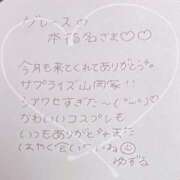 グレース♡
本指名さま♡♡
今月も来てくれてありがとう
サプライズ山岡家!!
シアワセすぎた〜(´˘`)♡
かわいいコスプレも
いつもありがとな
はやく会いたいね
ゆずる